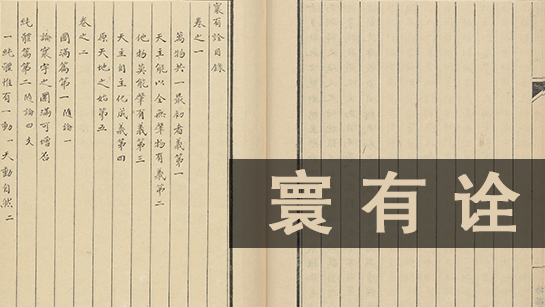 寰有詮目錄
卷之一
萬物共一最初者義第一
天主能以全無肇物有義第二
他物莫能肇有義第三
天主自主化成義第四
原天地之始第五
卷之二
圜滿篇第一隨論一
論寰宇之圜滿可增否
純體篇第二隨論四支
一純體惟有一動一天動自然二
寰有诠